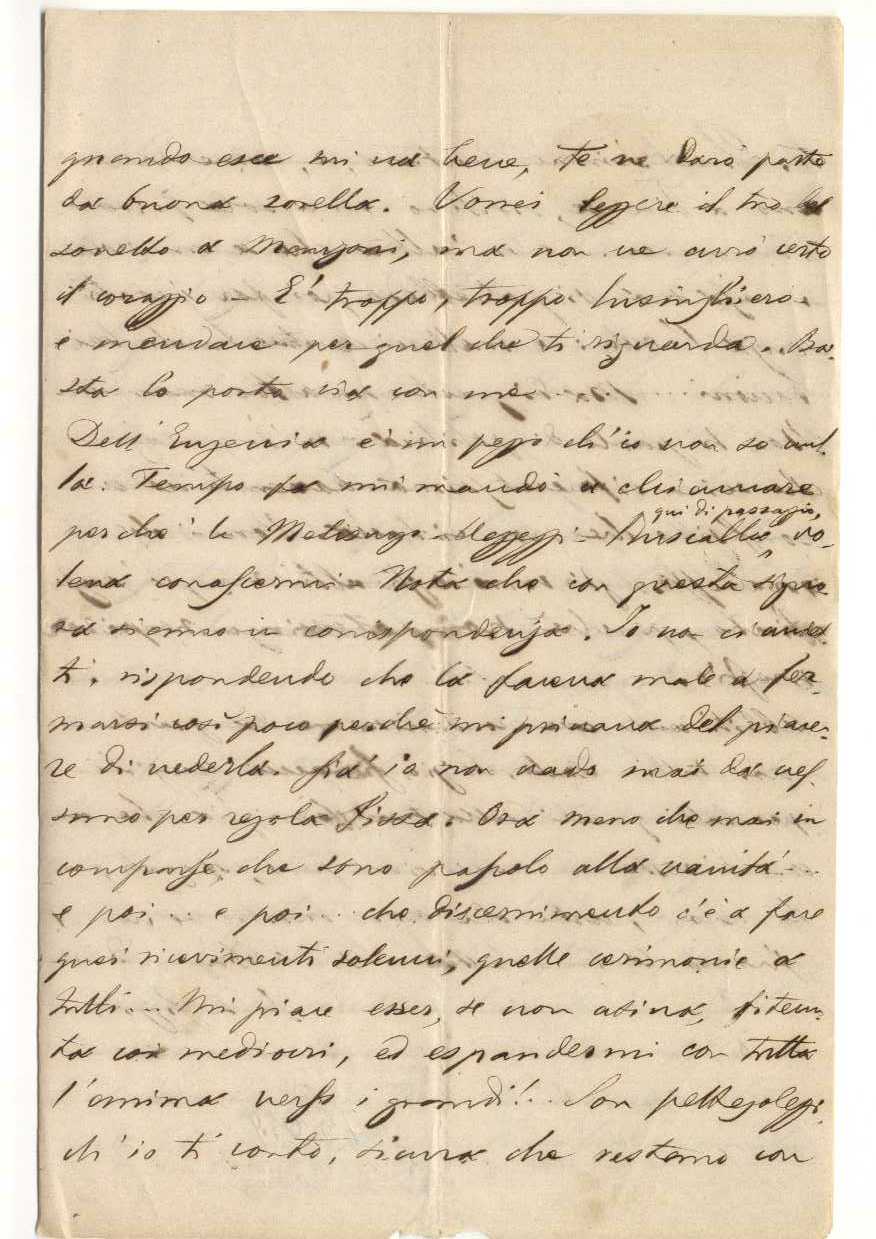 quando esce mi va bene, te ne darò parte
da buona sorella. Vorrei leggere il tuo bel
sonetto a Manzoni, ma non ne avrò certo
il coraggio – E' troppo, troppo lusinghiero
e mendace per quel che ti riguarda. Ba-
sta lo porto via con me.
Dell'Eugenia è un pezzo ch'io non so nul-
la. Tempo fa mi mandò a chiamare
qui di passaggio,
perchè la vo-
leva conoscermi. Nota che con questa signo-
ra siamo in corrispondenza. Io no ci andai
ti, rispondendo che la faceva male a fer-
marsi così poco perchè mi privava del piace-
re di vederla. Già io non vado mai da nes-
suno per regola fissa. Ora meno che mai in
che sono alla vanità...
e poi... e poi... che discernimento c'è a fare
quei ricevimenti solenni, quelle cerimonie a
tutti... Mi piace esser, se non asina, ritenu-
ta coi mediocri, ed espandermi con tutta
l'anima verso i grandi!.. Son pettegolezzi
ch'io ti conto, sicura che restano con